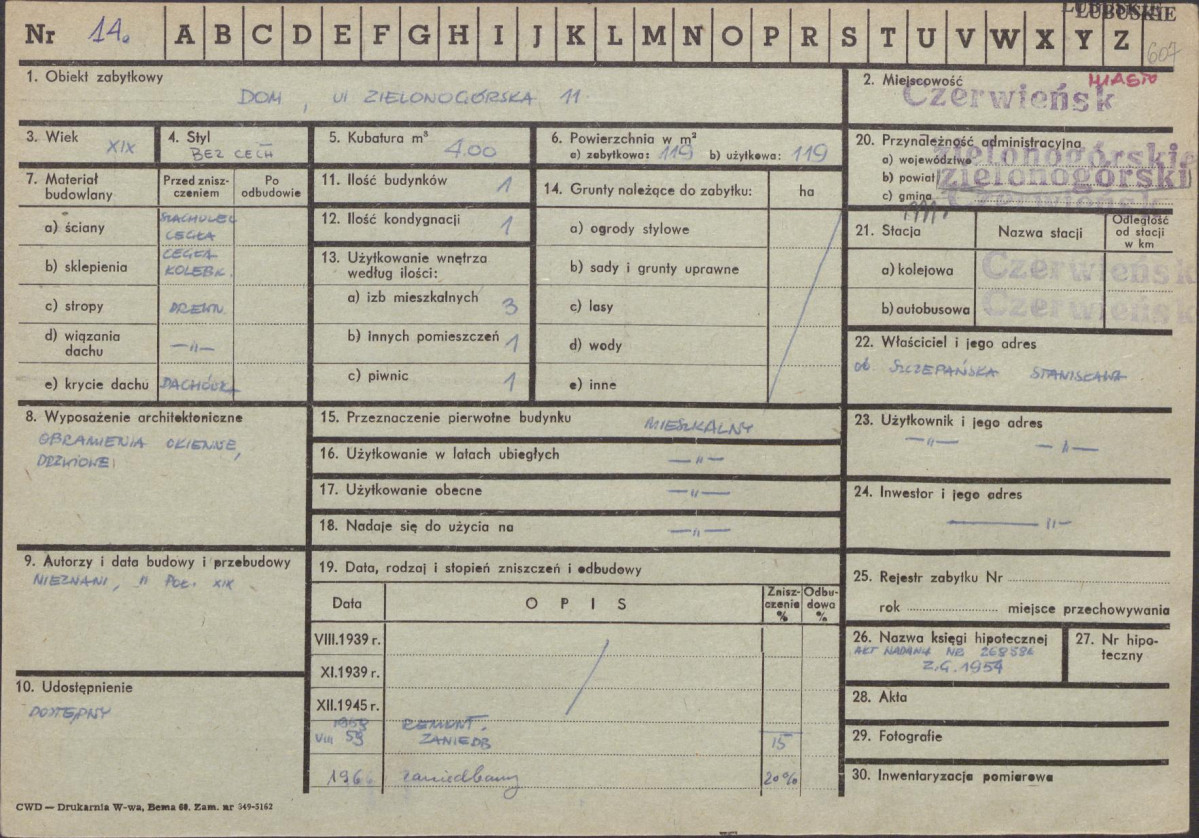 LUBUSKIE
LUBUSKIE
Nr 14. A B C D E F G H I J K L M N O P R S T U V W X Y Z
607
1. Obiekt zabytkowy
DOM, Ul ZIELONOGÓRSKA 11
2. Miejscowość MIASTO
Czerwieńsk
3. Wiek XIX
4. Styl
BEZ CECH
5. Kubatura m³ 400
6. Powierzchnia w m²
a) zabytkowa: 119 b) użytkowa: 119
20. Przynależność administracyjna
a) województwo zielonogórskie
b) powiat zielonogórski
c) gmina Czerwieńsk
7. Materiał budowlany
Przed zniszczeniem
Po odbudowie
a) ściany
CEGŁA
b) sklepienia CEGŁA
KOLEBK.
c) stropy DREWN.
d) wiązania dachu —"—
e) krycie dachu DACHÓWKA
11. Ilość budynków 1
12. Ilość kondygnacji 1
13. Użytkowanie wnętrza
według ilości:
a) izb mieszkalnych 3
b) innych pomieszczeń 1
c) piwnic 1
14. Grunty należące do zabytku: ha
a) ogrody stylowe
b) sady i grunty uprawne
c) lasy
d) wody
e) inne
21. Stacja Nazwa stacji Odległość od stacji w km
a) kolejowa Czerwieńsk
b) autobusowa Czerwieńsk
22. Właściciel i jego adres
ob. SZCZEPAŃSKA STANISŁAWA
8. Wyposażenie architektoniczne
OBRAMIENIA OKIENNE,
DRZWIOWE
15. Przeznaczenie pierwotne budynku MIESZKALNY
16. Użytkowanie w latach ubiegłych —"—
17. Użytkowanie obecne —"—
18. Nadaje się do użycia na —"—
23. Użytkownik i jego adres
—"— —"—
24. Inwestor i jego adres
—"—
9. Autorzy i data budowy i przebudowy
NIEZNANI, II POŁ. XIX
19. Data, rodzaj i stopień zniszczeń i odbudowy
Data OPIS Zniszczenie % Odbudowa %
VIII.1939 r.
XI.1939 r.
XII.1945 r.
REMONT.
VIII 59 ZANIEDB 15
1966 zaniedbany 20%
25. Rejestr zabytku Nr
rok miejsce przechowywania
26. Nazwa księgi hipotecznej
AKT NADANIA NR
Z.G. 1954
27. Nr hipoteczny
10. Udostępnienie
DOSTĘPNY
28. Akta
29. Fotografie
30. Inwentaryzacja pomiarowa
CWD — Drukarnia W-wa, Bema 60. Zam. nr 349-5162